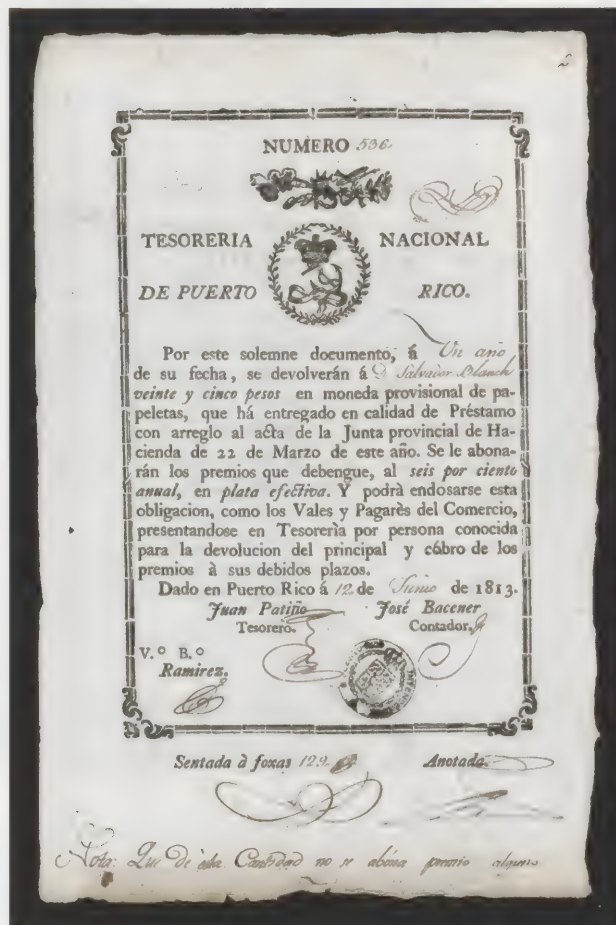 2
NUMERO 536.
TESORERIA NACIONAL
DE PUERTO RICO.
Por este solemne documento, á Un año
de su fecha, se devolverán á D. Salvador Blanch
veinte y cinco pesos en moneda provisional de pa-
peletas, que há entregado en calidad de Préstamo
con arreglo al acta de la Junta provincial de Ha-
cienda de 22 de Marzo de este año. Se le abona-
rán los premios que debengue, al seis por ciento
anual, en plata efectiva. Y podrà endosarse esta
obligacion, como los Vales y Pagarès del Comercio,
presentandose en Tesorerìa por persona conocida
para la devolucion del principal y cóbro de los
premios à sus debidos plazos.
Dado en Puerto Rico á 12 de Junio de 1813.
Juan Patiño José Bacener
Tesorero. Contador.
V.º B.º
Ramirez.
Sentada à foxas 129. Anotada.
Nota: Que de esta Cantidad no se abóna premio alguno